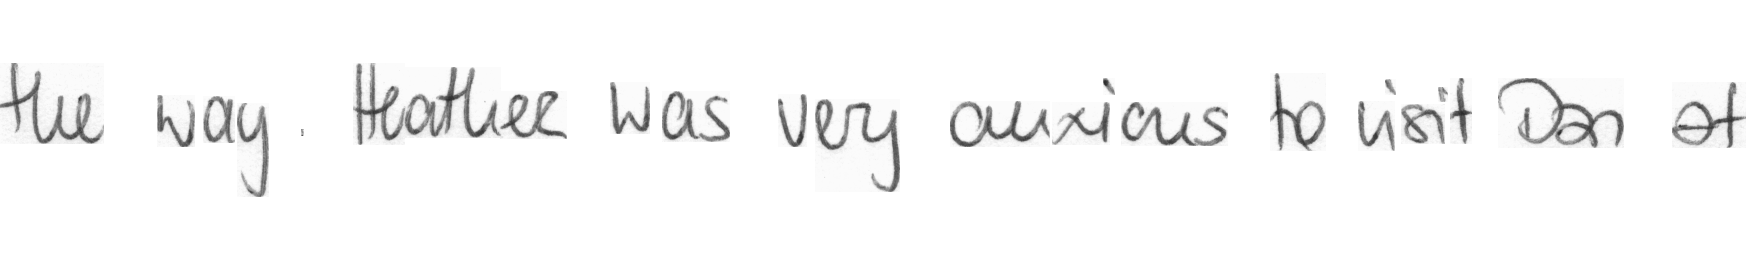 the way. Heather was very anxious to visit Dan at